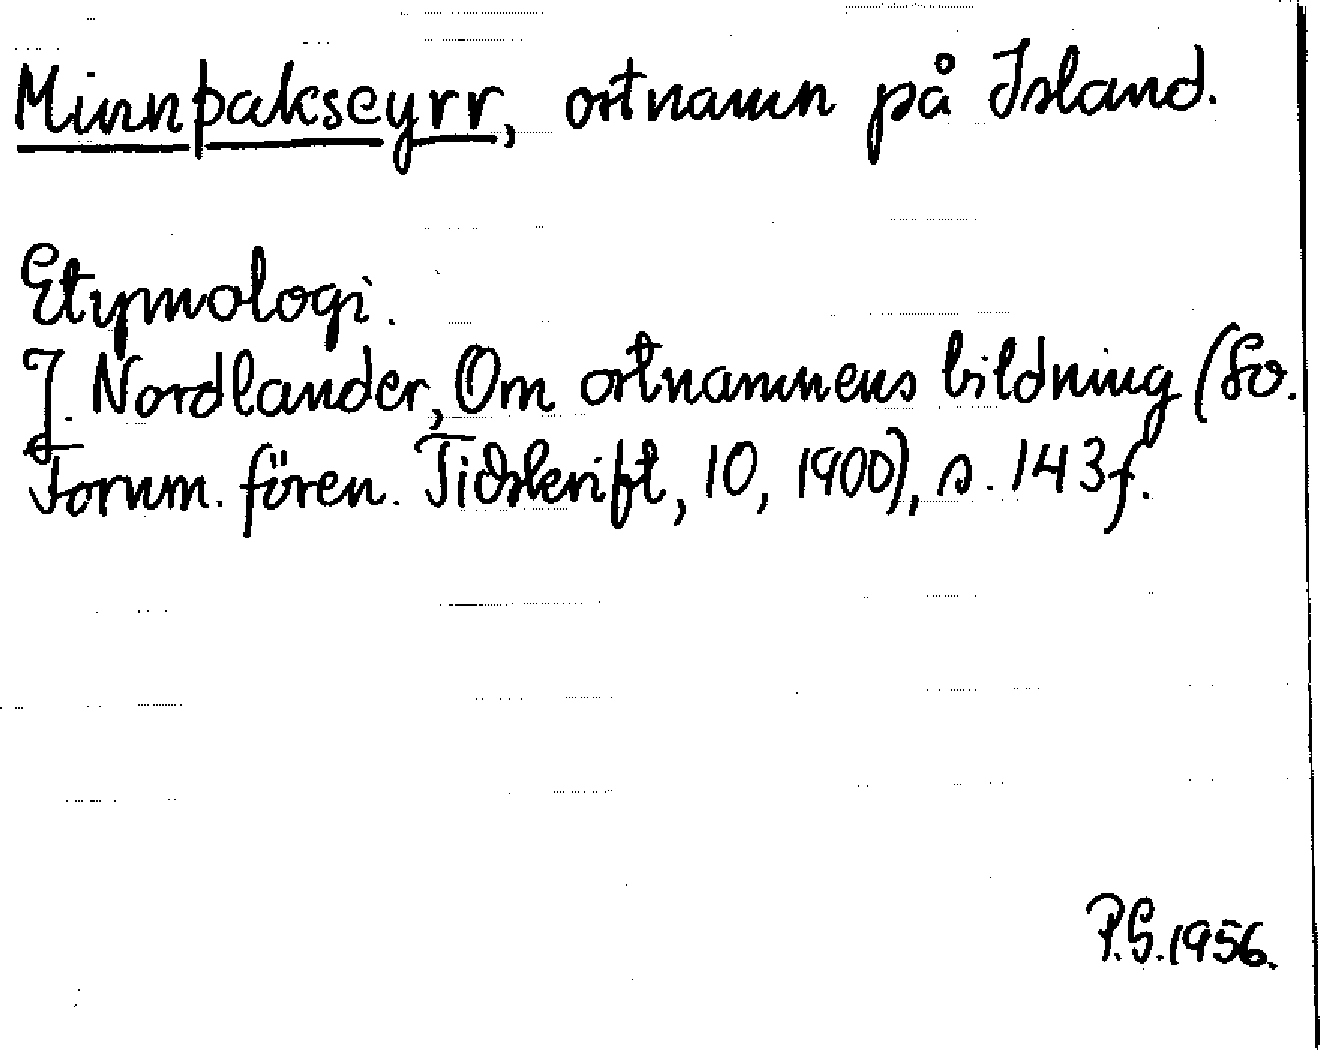 Minnþakseyrr, ortnamn på Island.
Etymologi.
J. Nordlander, Om ortnamnens bildning (Sv.
Fornm. fören. Tidskrift, 10, 1900), s. 143 f.
P.G. 1956.